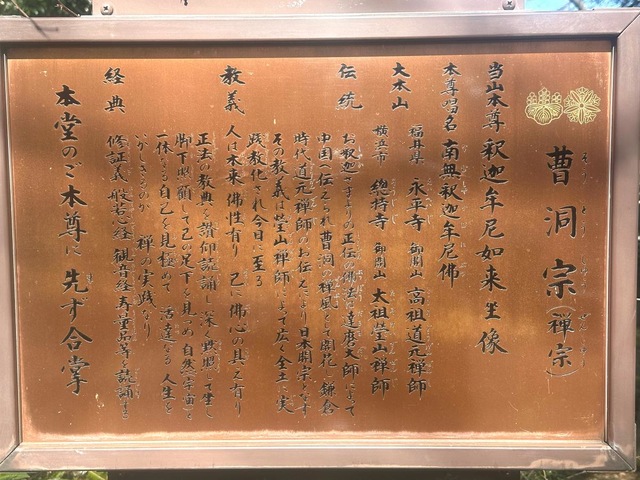 曹洞宗(禅宗)
当山本尊 釈迦牟尼如来坐像
本尊唱名 南無釈迦牟尼佛
大本山 福井県 永平寺 御開山 高祖道元禅師
横浜市 總持寺 御開山 太祖瑩山禅師
伝統 お釈迦さまよりの正伝の佛法は達磨大師によって
中国に伝えられ曹洞の禅風として開花 鎌倉
時代道元禅師のお伝えにより日本開宗となす
その教義は瑩山禅師によって広く全土に実
践教化され今日に至る
教義 人は本来佛性有り 己に佛心の具え有り
正法の教典を讃仰読誦し 深く黙照して坐し
脚下照顧して己の足下を見つめ 自然宇宙と
一体なる自己を見極めて 活達なる人生を
いかしきるのが 禅の実践なり
経典 修証義 般若心経 観音経 寿量品等を読誦する
本堂のご本尊に 先ず合掌